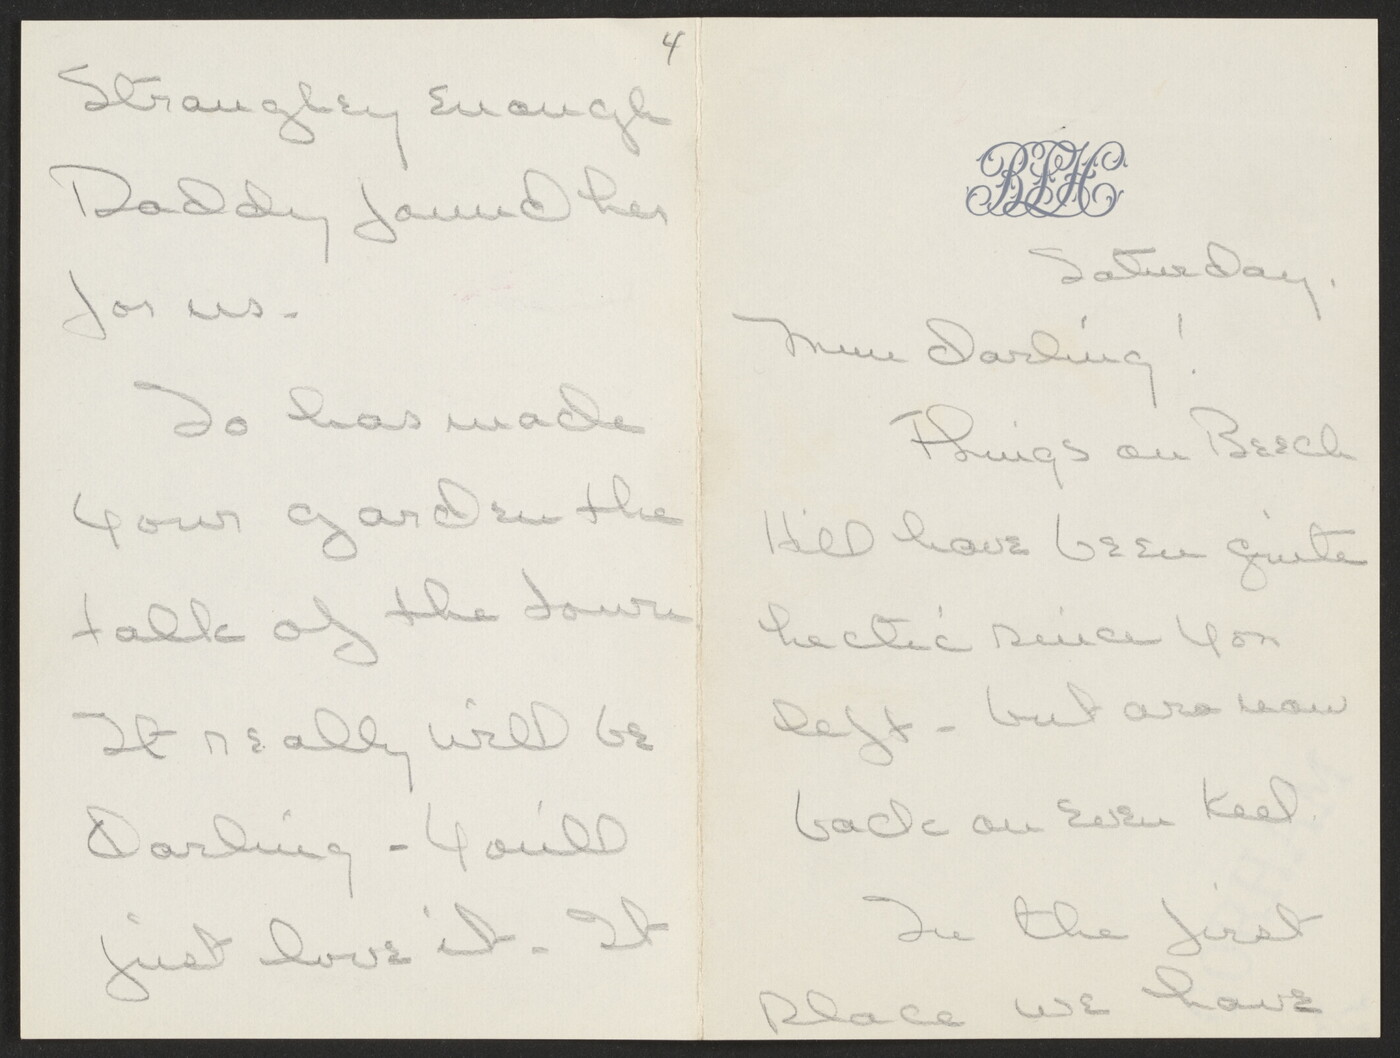 4
Straughley Enough
Daddy found her
for us.
Jo has made
your garden the
talk of the town
It really will be
Darling - You'll
just love it. - It
BLH
Saturday.
Mine Darling!
Things on Beech
Hill have been quite
hectic since you
left - but are now
back on even keel.
In the first
place we have